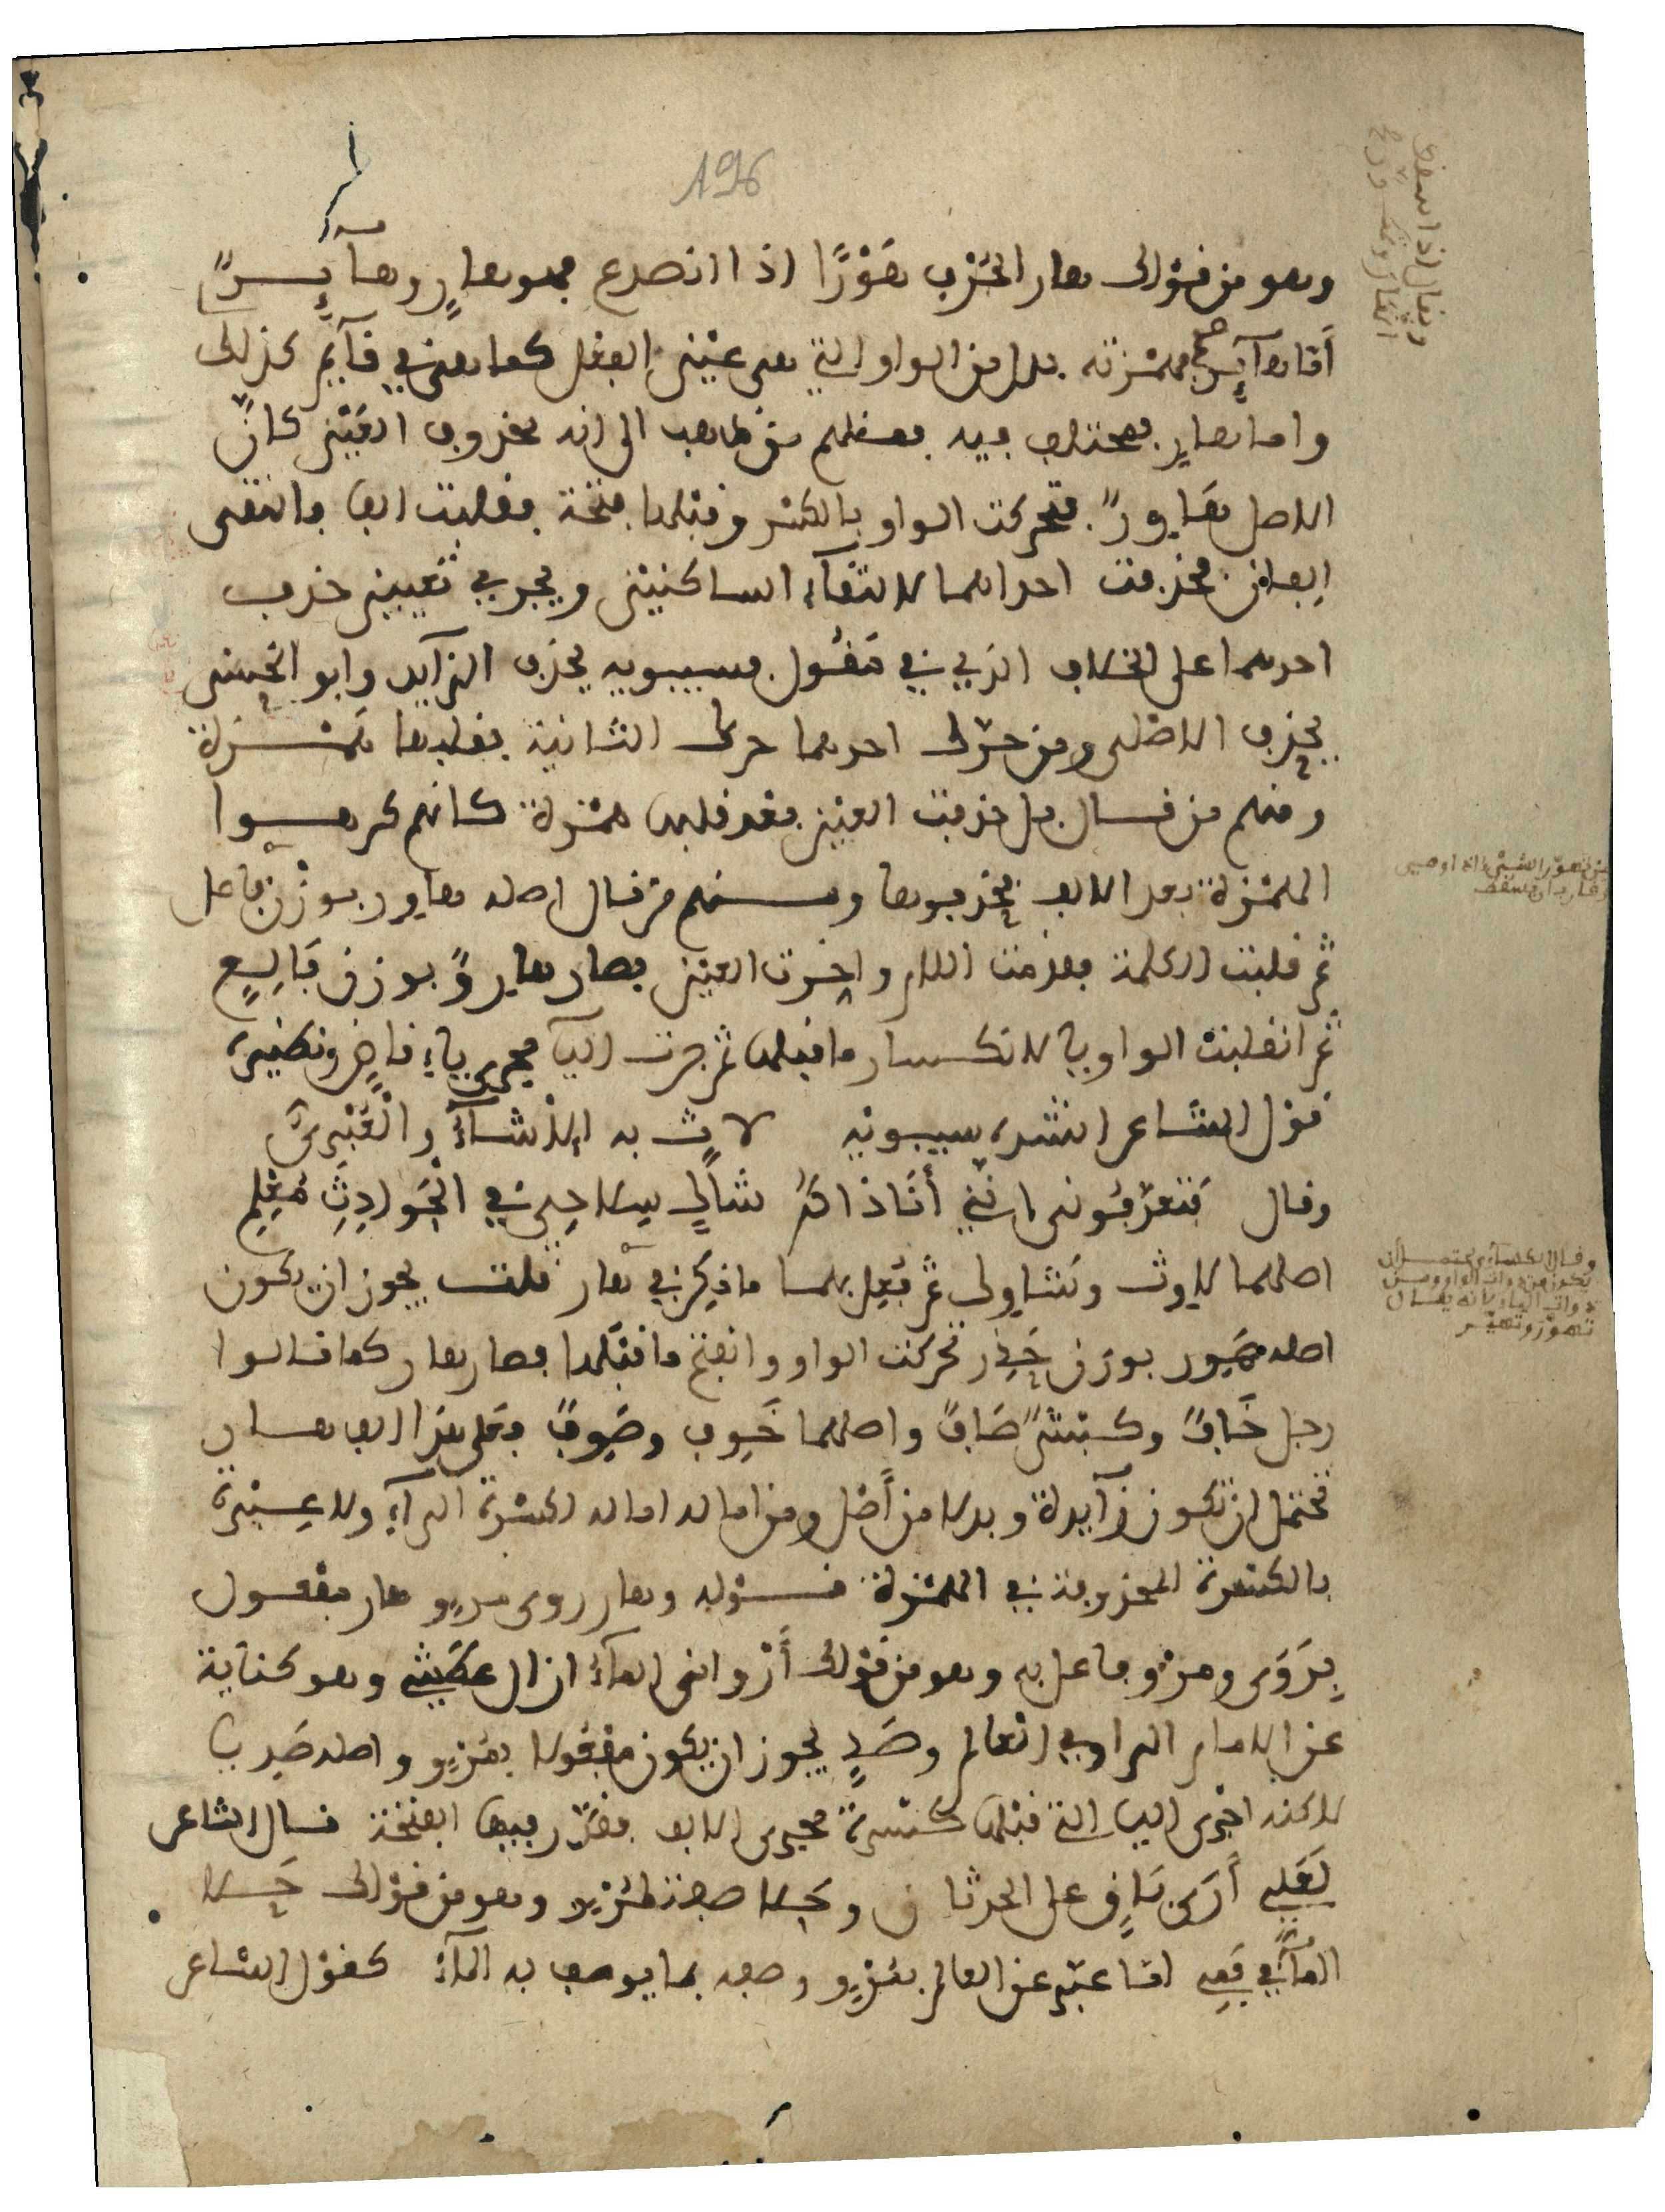 196
وهو من قولك هار الجرف هَوْرًا اذا انصدع فهو هارٍ وهآئِـرٌ
أمّا هآئر فهمزته بدل من الواو التي هي عين الفعل كما هي في قآئم كذلك
واما هار فمختلف فيه فمنهم من ذهب الى انه محذوف العين كانّ
الاصل هَاوِرٌ فتحركت الواو بالكسر وقبلها فتحة فقلبت الفا فالتقى
الفان فحذفت احداهما لالتقآء الساكنين ويجري في تعيين حذف
احدهما على الخلاف الذي في مَقُول فسيبويه يحذف الزآيد وابو الحسن
يحذف الاصلي ومن حرّك احدهما حرك الثانية فقلبها همـزة
ومنهم من قال بل حذفت العين بعد قلبها همزة كانهم كرهوا
الهمزة بعد الالف فحذفوها ومنهم من قال اصله هاور بوزن فاعل
ثم قلبت الكلمة فقدمت اللام واخرت العين فصار هارِوٌ بوزن فَالِـعٍ
ثم انقلبت الواو يا لانكسار ما قبلها ثم جرت اليآ مجرى يآء قاضٍ ونظيره
قول الشاعر انشده سيبويه لاثٍ به الاشآءُ والْعُبْرِيُّ
وقال فتعرّفوني انني أَنَا ذاكمُ شاكٍ سِلاحِي في الْحَوادِثِ مُعْلِمِ
اصلهما لاوث وشاوك ثم فُعِل بهما ما ذُكِر في هار قلت يجوز ان يكون
اصله هَوِر بوزن حَذِر تحركت الواو وانفتح ما قبلها فصار هار كما قالوا
رجل خَافٌ وكبش صَافٌ واصلهما خَوِف وصَوِفٌ فعلى هذا الف هار
تحتمل ان تكون زآيدة وبدلا من أصل ومن اماله اماله لكسرة الرآء ولا عبرة
بالكسرة المحذوفة في الهمزة قـوله وهار روى مروٍ هار مفعول
بِرَوَى ومروٍ فاعل به وهو من قولك أَرْواني المآءُ ازال عَطَشِي وهو كناية
عن الامام الراوي العالم وصَدٍ يجوز ان يكون مفعولا بمُرْوٍ واصله صَدِيا
لاكنه اجرى اليا التي قبلها كسرة مجرى الالف فقدّر فيها الفتحة قال الشاعر
لَعَلِّي أَرَى بَاقٍ على الحدثان وحَـلا صفة لمُرْوٍ وهو من قولك حَـلا
المآءُ في فَمِي لمّا عبّر عن العالم بمُرْوٍ وصفه بما يوصف به المآءُ كقول الشاعر
وقال الكسآئي يحتمل أن
يكون من ذوات الواو ومن
ذوات اليا وانه يقال
تهوّر وتهيّر